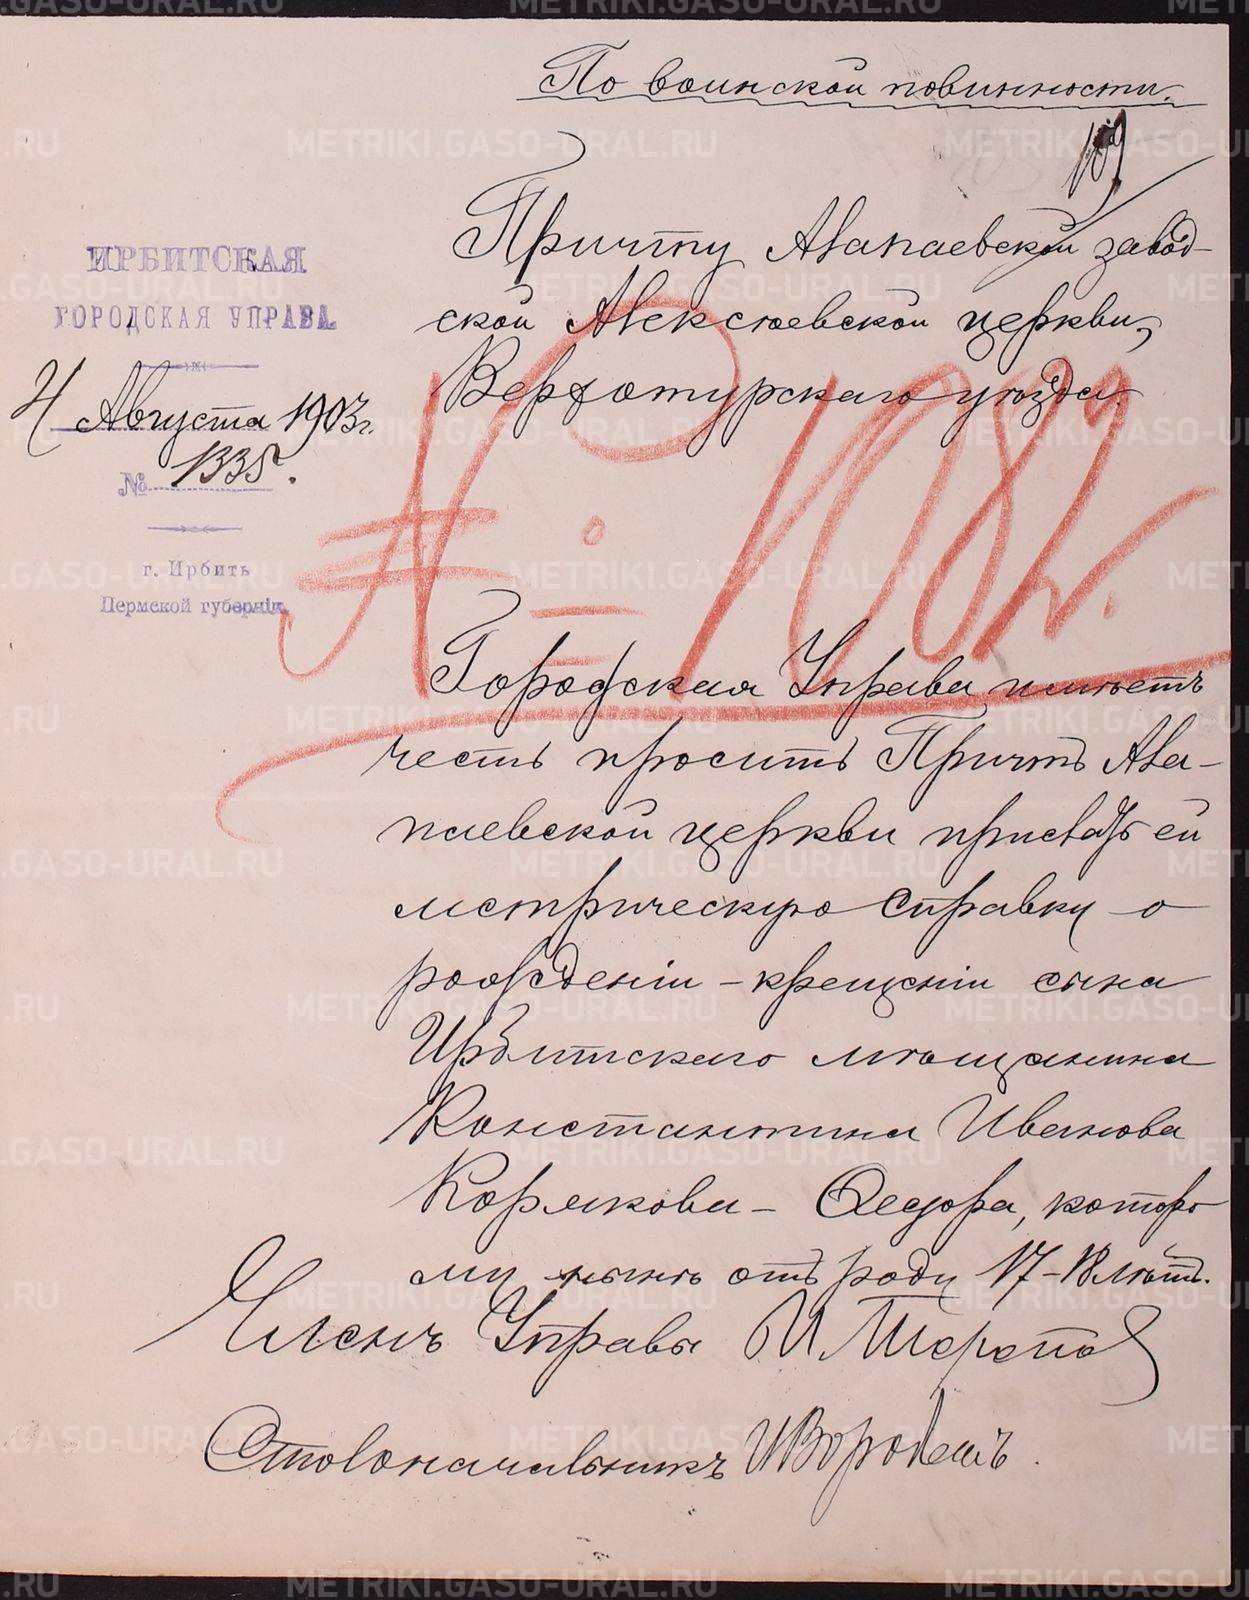 По воинской повинности.
109
Причту Алапаевской завод-
ской Алексеевской церкви,
Верхотурскаго уезда.
ИРБИТСКАЯ
ГОРОДСКАЯ УПРАВА
4 Августа 1903 г.
№ 1335.
г. Ирбить
Пермской губернiи
№ 1082.
Городская Управа имѣетъ
честь просить Причтъ Ала-
паевской церкви прислать ей
метрическую справку о
рожденiи-крещенiи сына
Ирбитскаго мѣщанина
Константина Иванова
Корякова - Федора, которо
му нынѣ отъ роду 17-18 лѣтъ.
Членъ Управы И. Терепов
Столоначальникъ И
METRIKI.GASO-URAL.RU